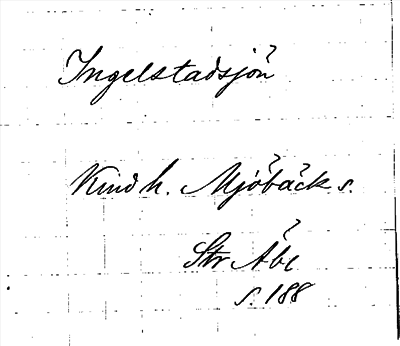 Ingelstadsjön
Kind h. Mjöbäck s.
Str Åbc
s. 188